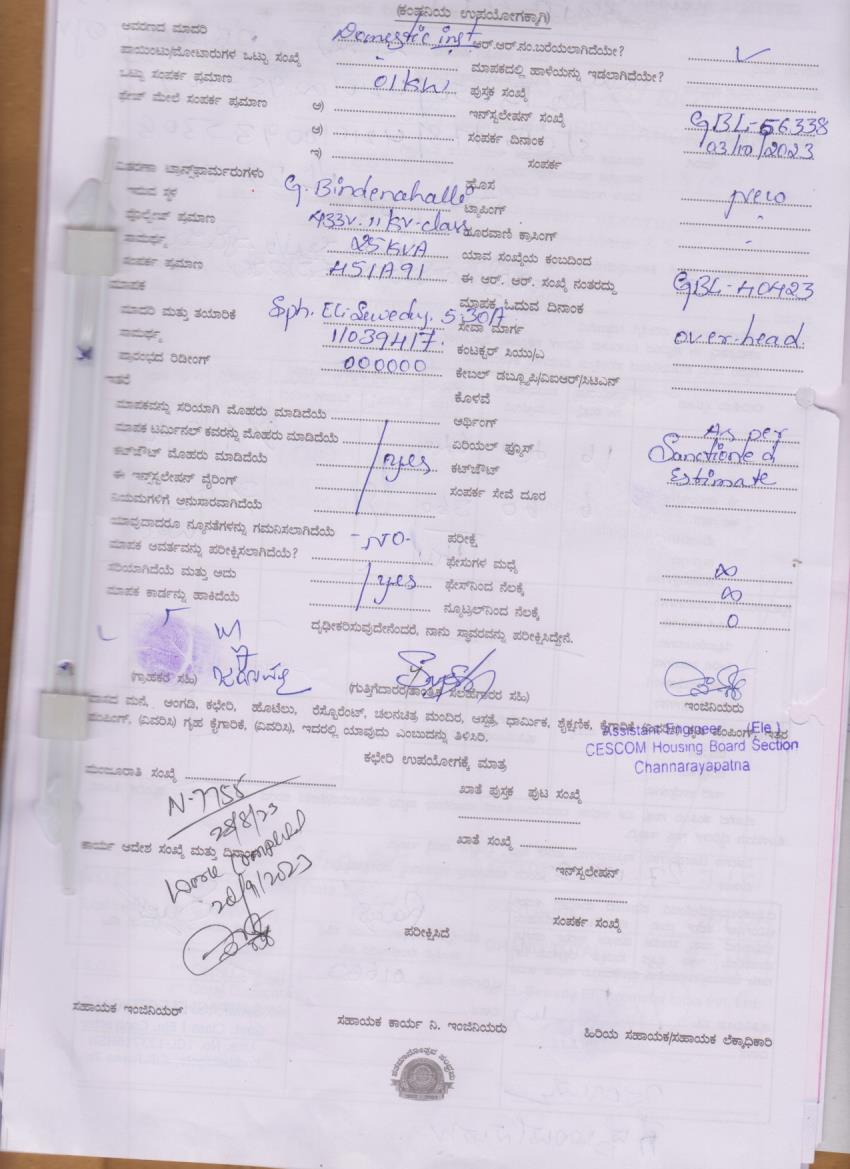 (ಕಂಪನಿಯ ಉಪಯೋಗಕ್ಕಾಗಿ)
ಆವರಣದ ಮಾದರಿ Domestic inst ಆರ್.ಆರ್.ನಂ.ಬರೆಯಲಾಗಿದೆಯೇ? ✓
ಪಾಯಿಂಟು/ಮೋಟಾರುಗಳ ಒಟ್ಟು ಸಂಖ್ಯೆ ಮಾಪಕದಲ್ಲಿ ಹಾಳೆಯನ್ನು ಇಡಲಾಗಿದೆಯೇ?
ಒಟ್ಟು ಸಂಪರ್ಕ ಪ್ರಮಾಣ 01KW ಪುಸ್ತಕ ಸಂಖ್ಯೆ
ಫೇಜ್ ಮೇಲೆ ಸಂಪರ್ಕ ಪ್ರಮಾಣ ಅ) ಇನ್‌ಸ್ಟಲೇಷನ್ ಸಂಖ್ಯೆ GBL-56338
ಆ) ಸಂಪರ್ಕ ದಿನಾಂಕ 03/10/2023
ಇ) ಸಂಪರ್ಕ
ವಿತರಣಾ ಟ್ರಾನ್ಸ್‌ಫಾರ್ಮರುಗಳು ಹೊಸ New
ಇರುವ ಸ್ಥಳ G. Bindenahalli ಟ್ಯಾಪಿಂಗ್ -
ವೋಲ್ಟೇಜ್ ಪ್ರಮಾಣ 433V. 11 KV-class ದೂರವಾಣಿ ಕ್ರಾಸಿಂಗ್ -
ಸಾಮರ್ಥ್ಯ 25KVA ಯಾವ ಸಂಖ್ಯೆಯ ಕಂಬದಿಂದ
ಸಂಪರ್ಕ ಪ್ರಮಾಣ 451A91 ಈ ಆರ್. ಆರ್. ಸಂಖ್ಯೆ ನಂತರದ್ದು GBL-40423
ಮಾಪಕ ಮಾಪಕ ಓದುವ ದಿನಾಂಕ
ಮಾದರಿ ಮತ್ತು ತಯಾರಿಕೆ Sph. El. Sewedy. 5.30A ಸೇವಾ ಮಾರ್ಗ over-head.
ಸಾಮರ್ಥ್ಯ 11039417. ಕಂಟಕ್ಟರ್ ಸಿಯು/ಎ
ಪ್ರಾರಂಭದ ರಿಡೀಂಗ್ 000000 ಕೇಬಲ್ ಡಬ್ಲ್ಯೂಪಿ/ವಿಐಆರ್/ಸಿಟಿಎಸ್
ಇತರೆ ಕೊಳವೆ
ಮಾಪಕವನ್ನು ಸರಿಯಾಗಿ ಮೊಹರು ಮಾಡಿದೆಯೆ ಅರ್ಥಿಂಗ್ As per
ಮಾಪಕ ಟರ್ಮಿನಲ್ ಕವರನ್ನು ಮೊಹರು ಮಾಡಿದೆಯೆ ಏರಿಯಲ್ ಫ್ಯೂಸ್ Sanctioned
ಕಟ್‌ಔಟ್ ಮೊಹರು ಮಾಡಿದೆಯೆ yes ಕಟ್‌ಔಟ್ Estimate
ಈ ಇನ್‌ಸ್ಟಲೇಷನ್ ವೈರಿಂಗ್ ಸಂಪರ್ಕ ಸೇವೆ ದೂರ
ನಿಯಮಗಳಿಗೆ ಅನುಸಾರವಾಗಿದೆಯೆ
ಯಾವುದಾದರೂ ನ್ಯೂನತೆಗಳನ್ನು ಗಮನಿಸಲಾಗಿದೆಯೆ -NO- ಪರೀಕ್ಷೆ
ಮಾಪಕ ಆವರ್ತವನ್ನು ಪರೀಕ್ಷಿಸಲಾಗಿದೆಯೆ? ಫೇಸುಗಳ ಮಧ್ಯೆ ∞
ಸರಿಯಾಗಿದೆಯೆ ಮತ್ತು ಅದು yes ಫೇಸ್‌ನಿಂದ ನೆಲಕ್ಕೆ ∞
ಮಾಪಕ ಕಾರ್ಡನ್ನು ಹಾಕಿದೆಯೆ ನ್ಯೂಟ್ರಲ್‌ನಿಂದ ನೆಲಕ್ಕೆ 0
ದೃಢೀಕರಿಸುವುದೇನೆಂದರೆ, ನಾನು ಸ್ಥಾವರವನ್ನು ಪರೀಕ್ಷಿಸಿದ್ದೇನೆ.
(ಗ್ರಾಹಕರ ಸಹಿ) (ಗುತ್ತಿಗೆದಾರರ/ತಾಂತ್ರಿಕ ಸಲಹೆಗಾರರ ಸಹಿ) ಇಂಜಿನಿಯರು
ವಾಸದ ಮನೆ, ಅಂಗಡಿ, ಕಛೇರಿ, ಹೊಟೆಲು, ರೆಸ್ಟೊರೆಂಟ್, ಚಲನಚಿತ್ರ ಮಂದಿರ, ಆಸ್ಪತ್ರೆ, ಧಾರ್ಮಿಕ, ಶೈಕ್ಷಣಿಕ, ಕೈಗಾರಿಕೆ ಪಂಪಿಂಗ್, ಇತರ
ಪಂಪಿಂಗ್, (ವಿವರಿಸಿ) ಗೃಹ ಕೈಗಾರಿಕೆ, (ವಿವರಿಸಿ), ಇದರಲ್ಲಿ ಯಾವುದು ಎಂಬುದನ್ನು ತಿಳಿಸಿರಿ.
Assistant Engineer (Ele)
CESCOM Housing Board Section
Channarayapatna
ಕಛೇರಿ ಉಪಯೋಗಕ್ಕೆ ಮಾತ್ರ
ಮಂಜೂರಾತಿ ಸಂಖ್ಯೆ ಖಾತೆ ಪುಸ್ತಕ ಪುಟ ಸಂಖ್ಯೆ
N-7755
28/8/23
ಕಾರ್ಯ ಆದೇಶ ಸಂಖ್ಯೆ ಮತ್ತು ದಿನಾಂಕ ಖಾತೆ ಸಂಖ್ಯೆ
Work Completed
20/9/2023
ಇನ್‌ಸ್ಟಲೇಷನ್
ಸಂಪರ್ಕ ಸಂಖ್ಯೆ
ಪರೀಕ್ಷಿಸಿದೆ
ಸಹಾಯಕ ಇಂಜಿನಿಯರ್ ಸಹಾಯಕ ಕಾರ್ಯ ನಿ. ಇಂಜಿನಿಯರು ಹಿರಿಯ ಸಹಾಯಕ/ಸಹಾಯಕ ಲೆಕ್ಕಾಧಿಕಾರಿ